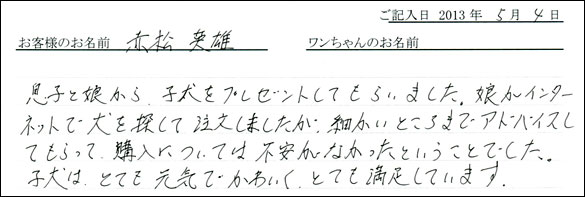 ご記入日 2013 年 5 月 4 日
お客様のお名前 赤松 英雄 ワンちゃんのお名前
息子と娘から、子犬をプレゼントしてもらいました。娘がインター
ネットで犬を探して注文しましたが、細かいところまでアドバイスし
てもらって、購入については不安がなかったということでした。
子犬は、とても元気でかわいく、とても満足しています。